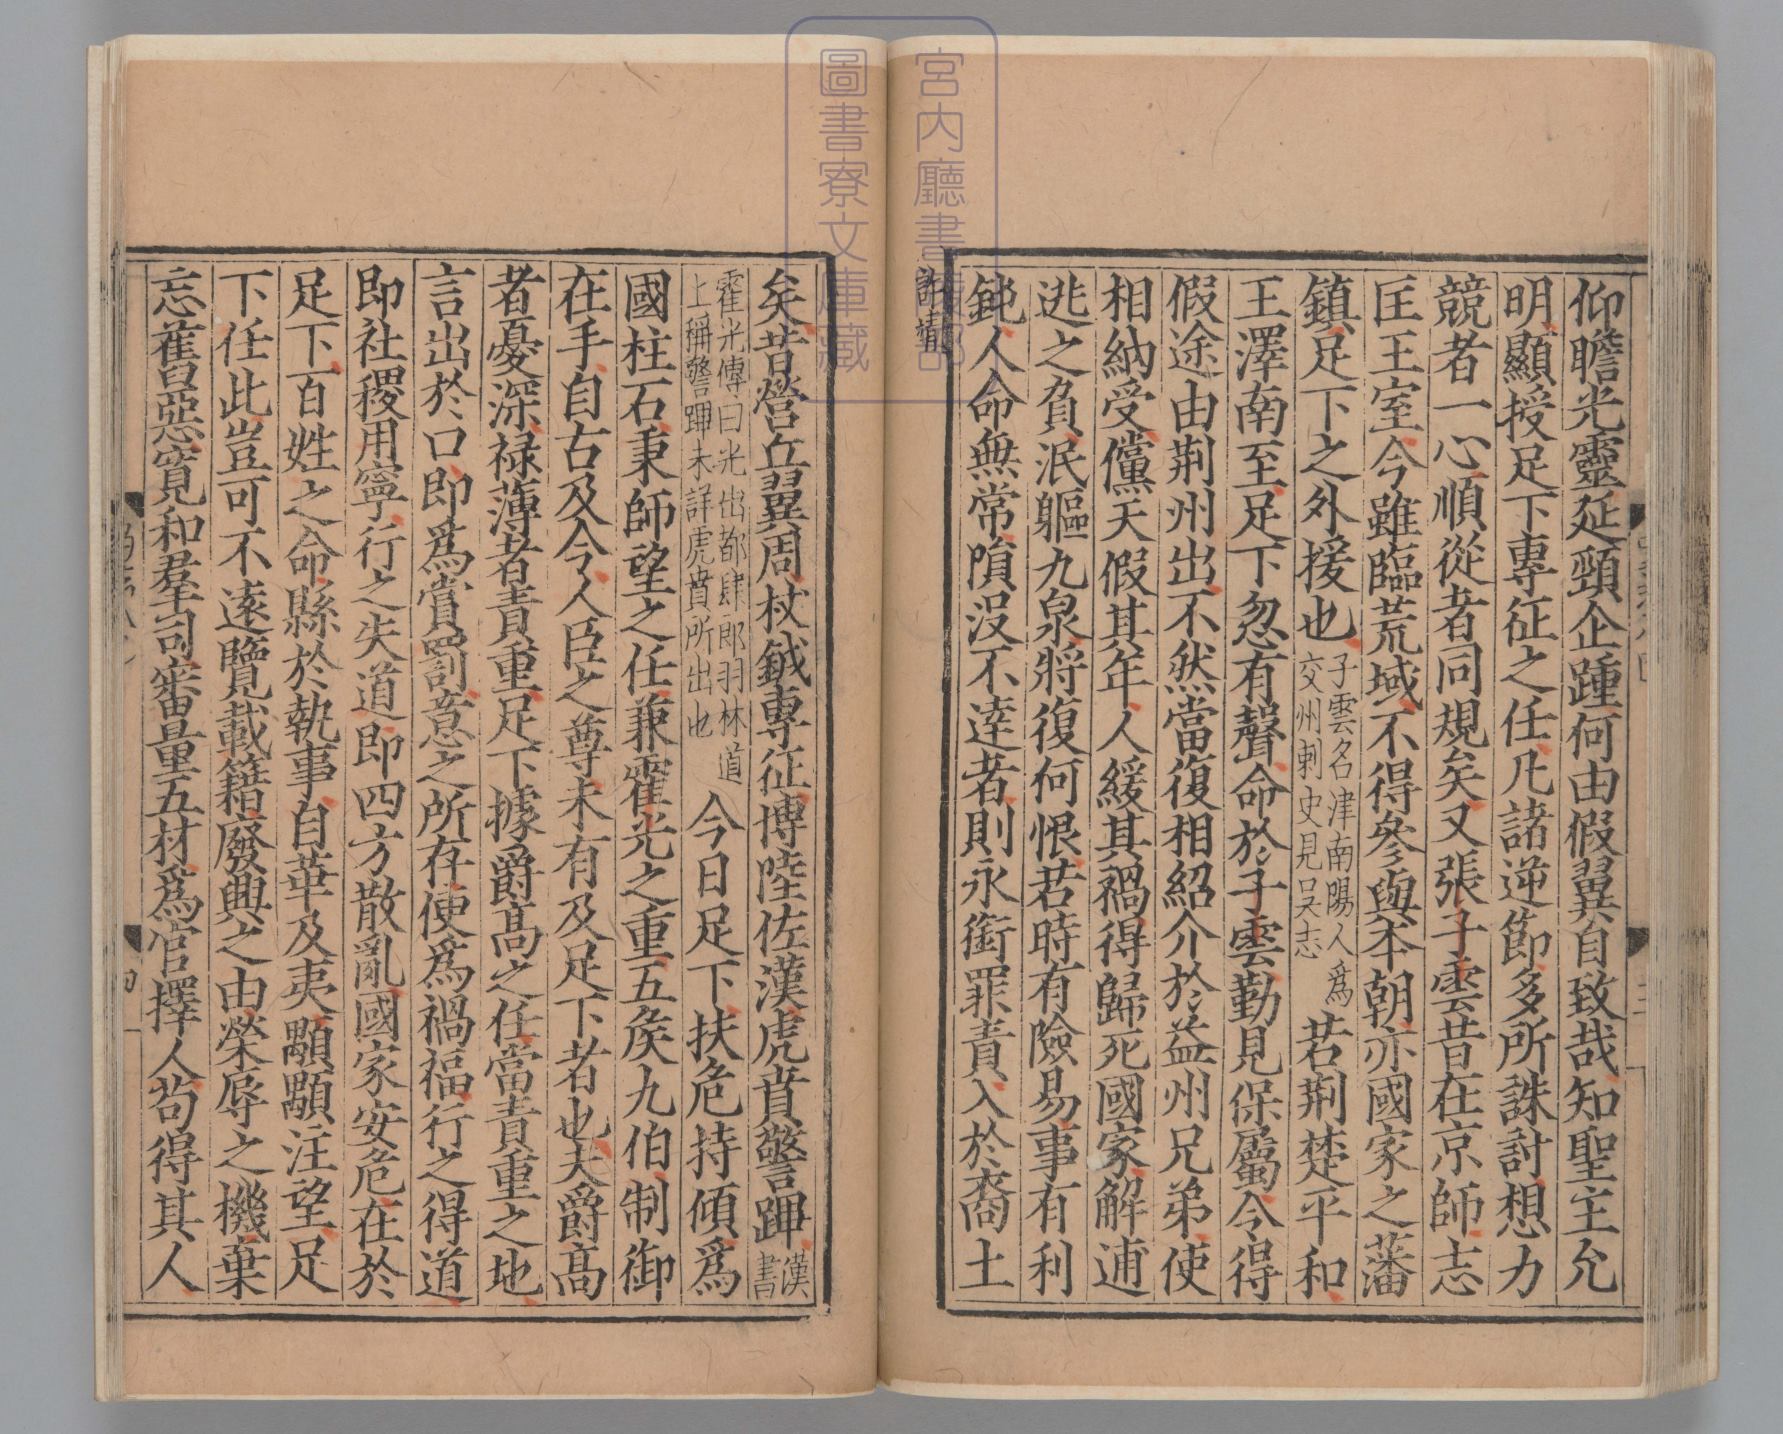 仰瞻光靈延頸企踵何由假翼自致哉知聖主允
明顯授足下專征之任凡諸逆節多所誅討想力
競者一心順從者同規矣又張子雲昔在京師志
匡王室今雖臨荒域不得參與本朝亦國家之藩
鎮足下之外援也子雲名津南陽人爲交州刺史見吳志若荆楚平和
王澤南至足下忽有聲命於子雲勤見保屬今得
假途由荆州出不然當復相紹介於益州兄弟使
相納受儻天假其年人緩其禍得歸死國家解逋
逃之負泯軀九泉將復何恨若時有險易事有利
鈍人命無常隕没不逹者則永銜罪責入於裔土
許靖
矣昔營丘翼周杖鉞專征博陸佐漢虎賁警蹕漢書
霍光傳曰光出都肄郎羽林道上稱警蹕未詳虎賁所出也今日足下扶危持傾爲
國柱石秉師望之任兼霍光之重五侯九伯制御
在手自古及今人臣之尊未有及足下者也夫爵髙
者憂深禄薄者責重足下據爵髙之任當責重之地
言出於口即爲賞罰意之所存便爲禍福行之得道
即社稷用寧行之失道即四方散亂國家安危在於
足下百姓之命縣於執事自華及夷顒顒注望足
下任此豈可不逺覽載籍廢興之由榮辱之機棄
忘舊惡寛和羣司審量五材爲官擇人茍得其人
四
宮内廳書陵部
圖書寮文庫藏